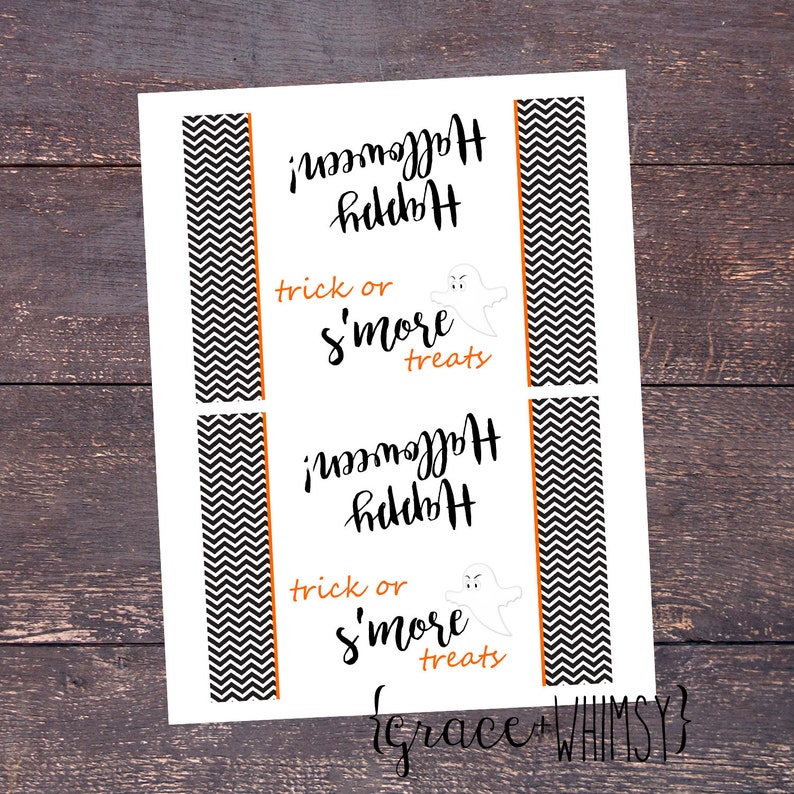 Happy
Halloween!
trick or
s'more
treats
Happy
Halloween!
trick or
s'more
treats
{grace+WHIMSY}